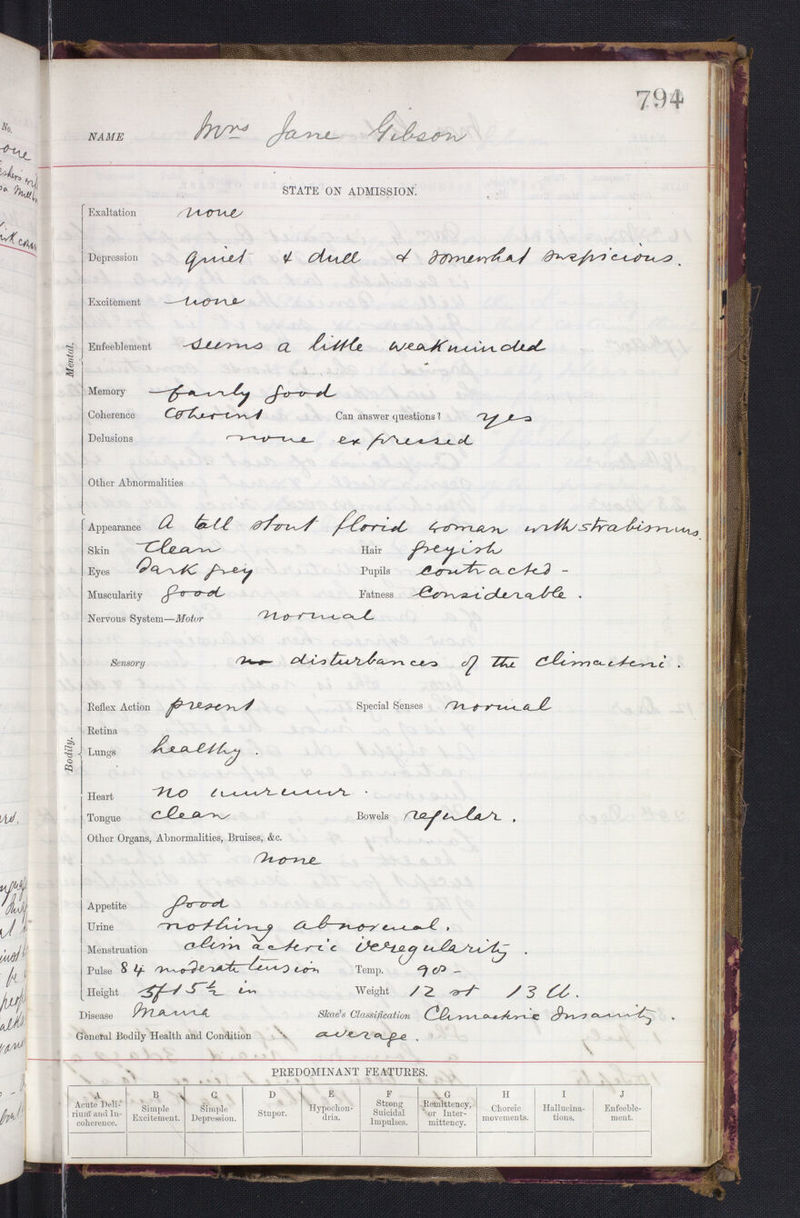 794
NAME Mrs Jane Gibson
STATE ON ADMISSION.
Mental.
Exaltation none
Depression quiet & dull & somewhat suspicious.
Excitement none
Enfeeblement seems a little weakminded
Memory fairly good
Coherence Coherent Can answer questions? yes
Delusions none expressed
Other Abnormalities
Bodily.
Appearance A tall stout florid woman with strabismus
Skin Clean Hair greyish
Eyes dark grey Pupils contracted -
Muscularity good Fatness Considerable.
Nervous System—Motor normal
Sensory disturbances of the climacteric.
Reflex Action present Special Senses normal
Retina
Lungs healthy.
Heart no murmur.
Tongue clean Bowels regular.
Other Organs, Abnormalities, Bruises, &c.
none
Appetite good
Urine nothing abnormal.
Menstruation climacteric irregularity.
Pulse 84 moderate tension Temp.
Height 5ft 5½ in Weight 12 st 13 lb.
Disease Mania Skae's Classification Climacteric Insanity.
General Bodily Health and Condition average.
PREDOMINANT FEATURES.
A B C D E F G H I J
Acute Delirium and Incoherence. Simple Excitement. Simple Depression. Stupor. Hypochondria. Strong Suicidal Impulses. Remittency, or Intermittency. Choreic movements. Hallucinations. Enfeeblement.
No.